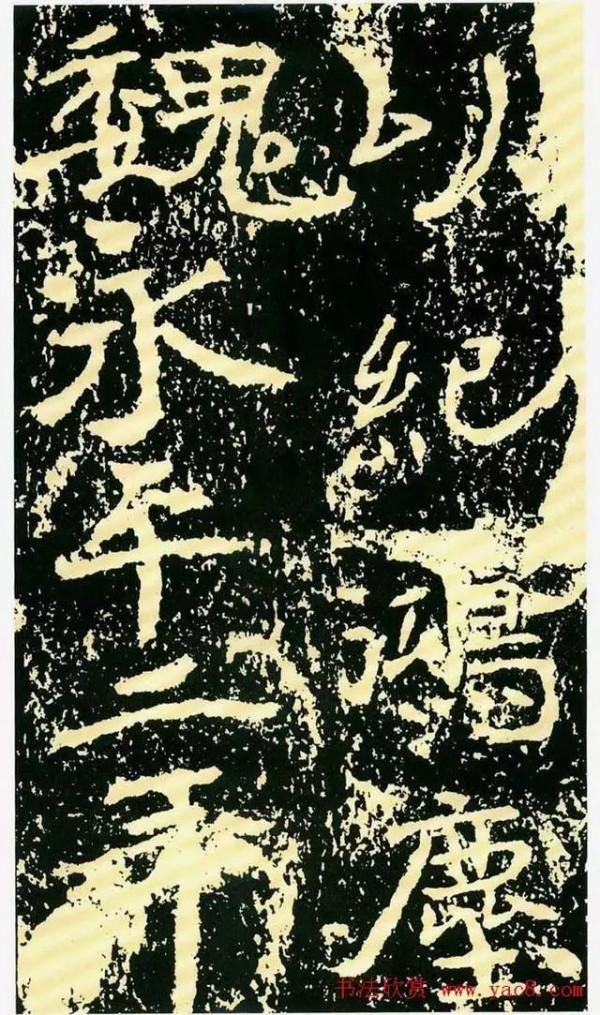 以紀鴻塵
魏永平二年
书法欣赏 www.yac8.com